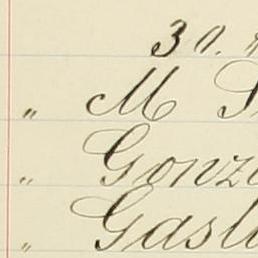 30. "
" M
" Gonz
" Gasl